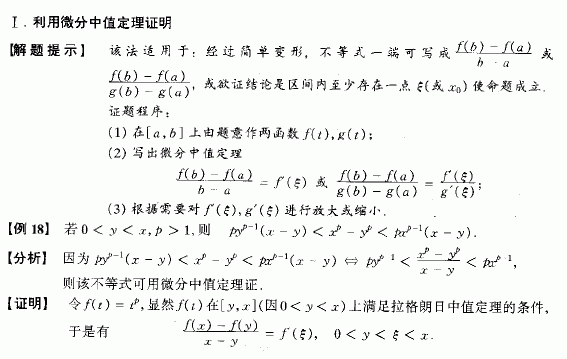 I. 利用微分中值定理证明
【解题提示】 该法适用于：经过简单变形，不等式一端可写成 \frac{f(b)-f(a)}{b-a} 或
\frac{f(b)-f(a)}{g(b)-g(a)}，或欲证结论是区间内至少存在一点 ξ(或 x_0) 使命题成立.
证题程序：
(1) 在[a,b]上由题意作两函数 f(t),g(t)；
(2) 写出微分中值定理
\frac{f(b)-f(a)}{b-a} = f′(ξ) 或 \frac{f(b)-f(a)}{g(b)-g(a)} = \frac{f′(ξ)}{g′(ξ)}；
(3) 根据需要对 f′(ξ),g′(ξ) 进行放大或缩小.
【例 18】 若 0 < y < x, p > 1, 则 py^{p-1}(x-y) < x^p - y^p < px^{p-1}(x-y).
【分析】 因为 py^{p-1}(x-y) < x^p - y^p < px^{p-1}(x-y) ⇔ py^{p-1} < \frac{x^p-y^p}{x-y} < px^{p-1},
则该不等式可用微分中值定理证.
【证明】 令 f(t) = t^p, 显然 f(t) 在[y,x](因 0 < y < x)上满足拉格朗日中值定理的条件,
于是有 \frac{f(x)-f(y)}{x-y} = f′(ξ), 0 < y < ξ < x.